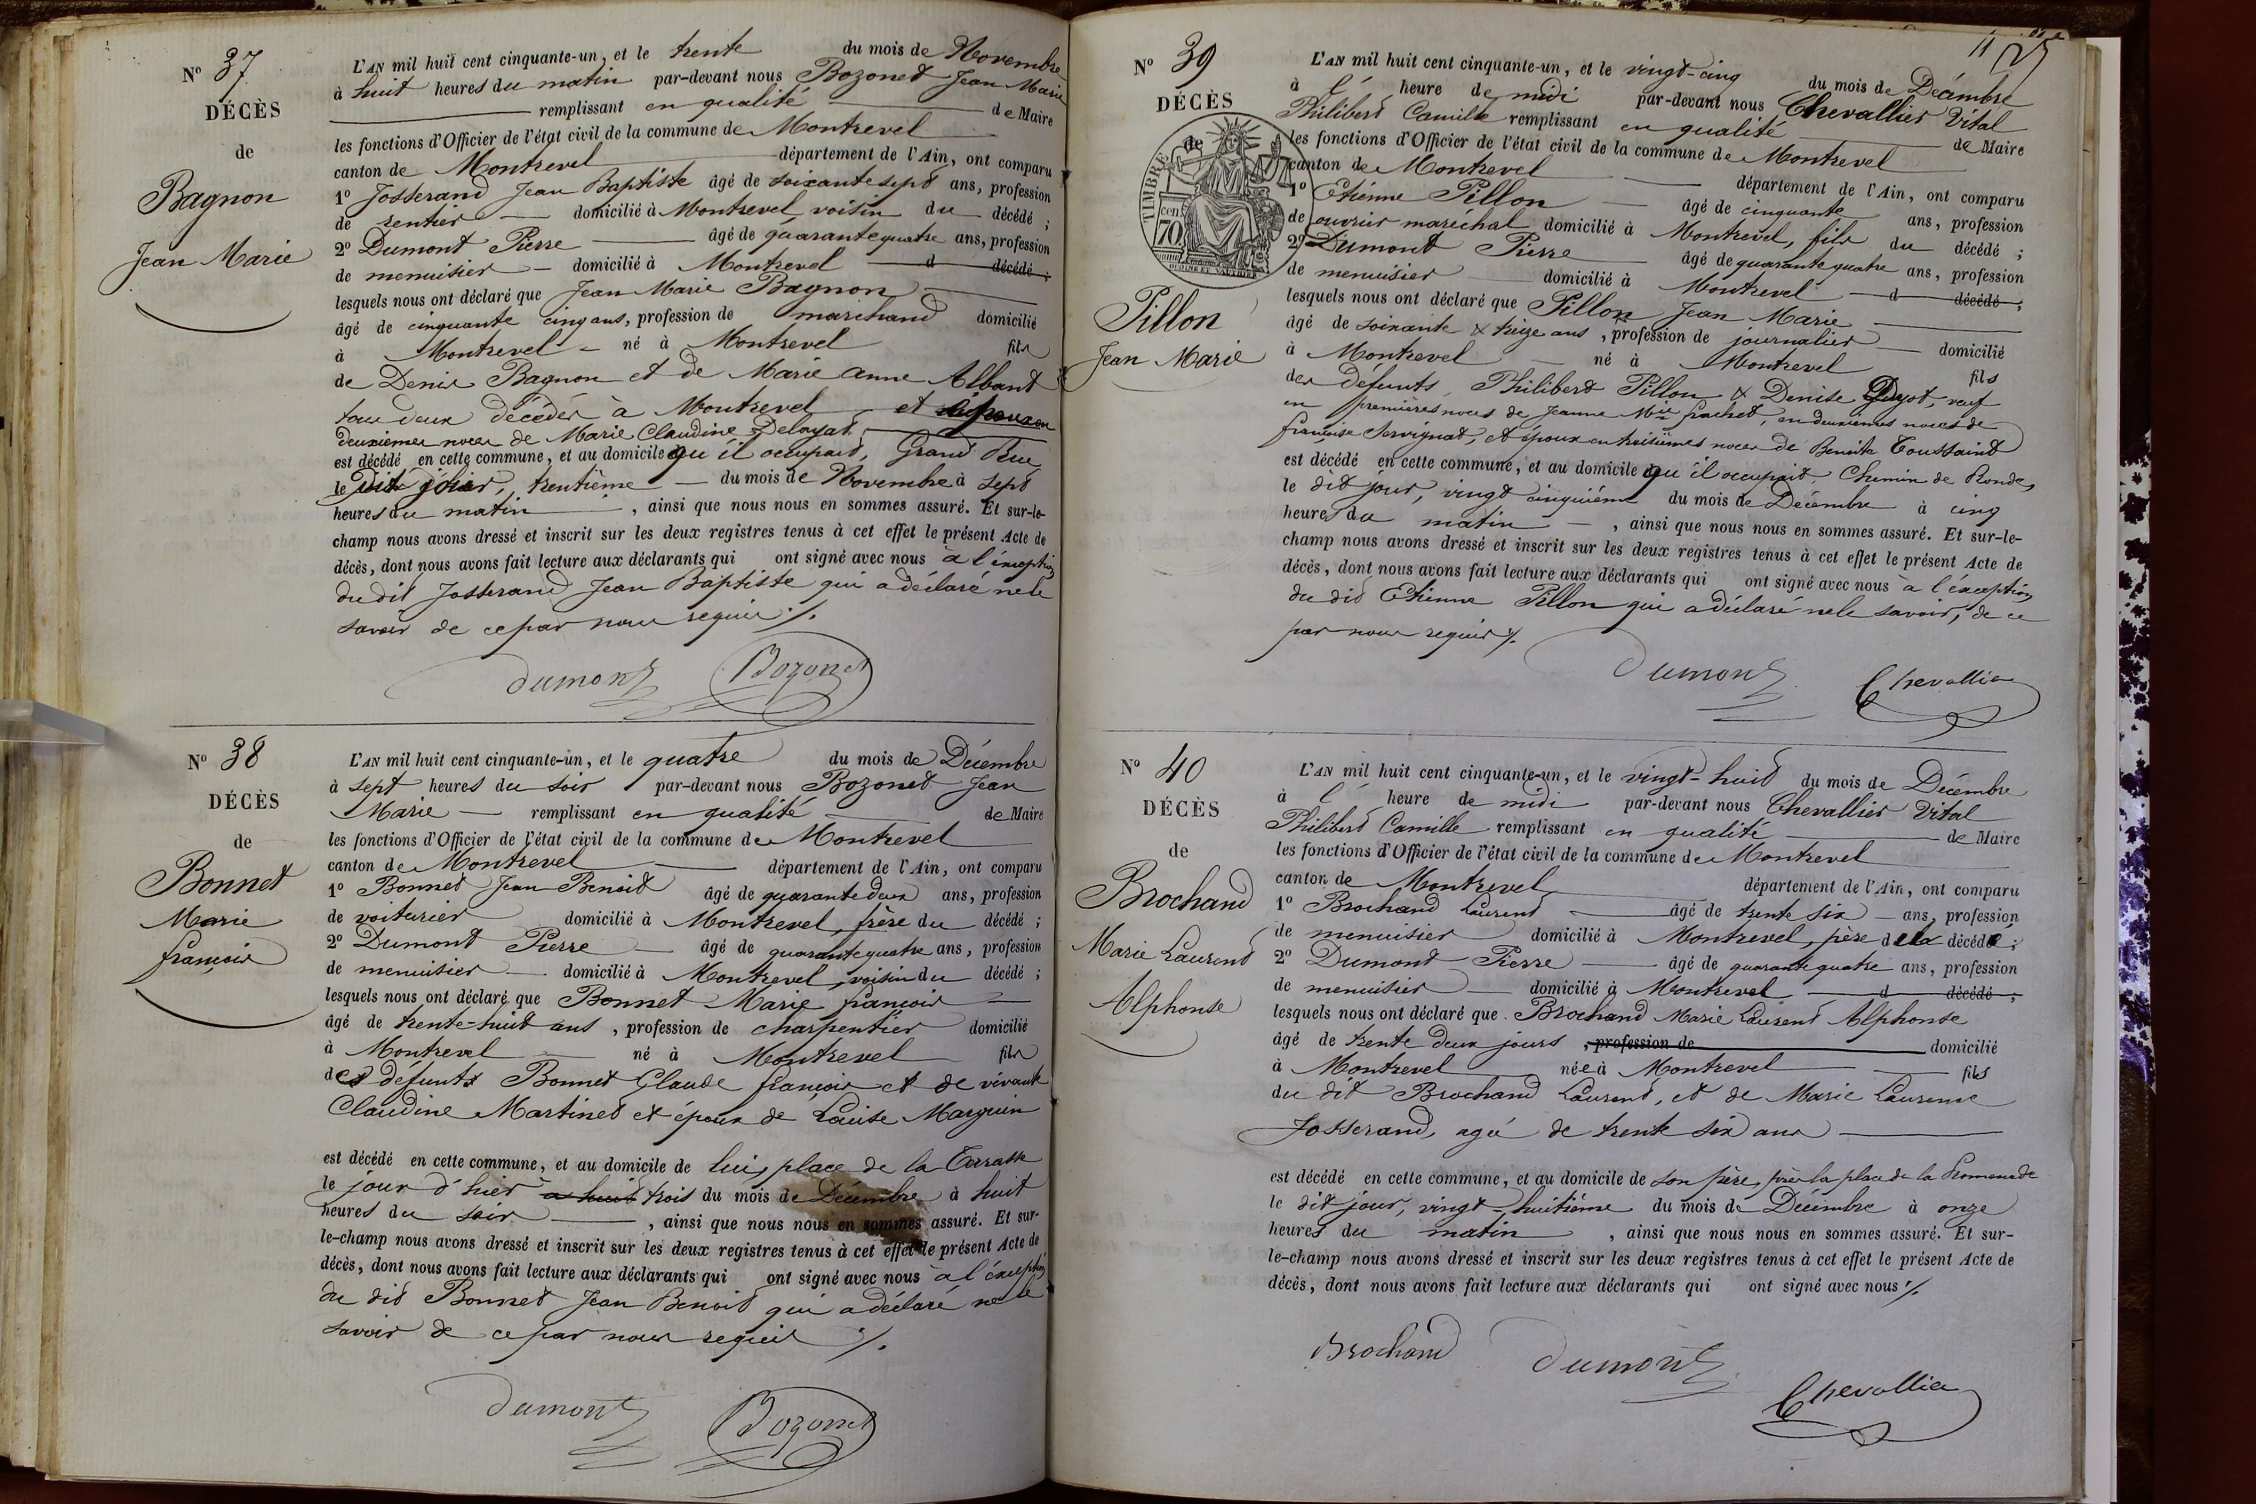 N° 37
DÉCÈS
de
Bagnon
Jean Marie
L'AN mil huit cent cinquante-un, et le trente du mois de Novembre
à huit heures du matin par-devant nous Bozonet Jean Marie
remplissant en qualité de Maire
les fonctions d'Officier de l'état civil de la commune de Montrevel
canton de Montrevel département de l'Ain, ont comparu
1° Josserand Jean Baptiste âgé de soixante sept ans, profession
de rentier domicilié à Montrevel, voisin du décédé ;
2° Dumont Pierre âgé de quarante quatre ans, profession
de menuisier domicilié à Montrevel d décédé ;
lesquels nous ont déclaré que Jean Marie Bagnon
âgé de cinquante cinq ans, profession de marchand domicilié
à Montrevel né à Montrevel fils
de Denis Bagnon et de Marie anne Albant
tous deux décédés à Montrevel et époux en
deuxièmes noces de Marie Claudine Delayat
est décédé en cette commune, et au domicile qu'il occupait, Grand Rue
le dit jour, trentième du mois de Novembre à sept
heures du matin, ainsi que nous nous en sommes assuré. Et sur-le-
champ nous avons dressé et inscrit sur les deux registres tenus à cet effet le présent Acte de
décès, dont nous avons fait lecture aux déclarants qui ont signé avec nous à l'éxception
du dit Josserand Jean Baptiste qui a déclaré ne le
savoir de ce par nous requis ./.
Dumont Bozonet
N° 38
DÉCÈS
de
Bonnet
Marie
françois
L'AN mil huit cent cinquante-un, et le quatre du mois de Décembre
à sept heures du soir par-devant nous Bozonet Jean
Marie remplissant en qualité de Maire
les fonctions d'Officier de l'état civil de la commune de Montrevel
canton de Montrevel département de l'Ain, ont comparu
1° Bonnet Jean Benoit âgé de quarante deux ans, profession
de voiturier domicilié à Montrevel, frère du décédé ;
2° Dumont Pierre âgé de quarante quatre ans, profession
de menuisier domicilié à Montrevel, voisin du décédé ;
lesquels nous ont déclaré que Bonnet Marie françois
âgé de trente-huit ans, profession de charpentier domicilié
à Montrevel né à Montrevel fils
des défunts Bonnet Claude françois et de vivante
Claudine Martinet et époux de Louise Marguin
est décédé en cette commune, et au domicile de lui, place de la Terrasse
le jour d'hier a huit trois du mois de Décembre à huit
heures du soir, ainsi que nous nous en sommes assuré. Et sur-
le-champ nous avons dressé et inscrit sur les deux registres tenus à cet effet le présent Acte de
décès, dont nous avons fait lecture aux déclarants qui ont signé avec nous à l'éxception
du dit Bonnet Jean Benoit qui a déclaré ne le
savoir de ce par nous requis ./.
Dumont Bozonet
N° 39
DÉCÈS
de
TIMBRE
cen.
70
Pillon
Jean Marie
L'AN mil huit cent cinquante-un, et le vingt-cinq du mois de Décembre
à l' heure de midi par-devant nous Chevallier Vital
Philibert Camille remplissant en qualité de Maire
les fonctions d'Officier de l'état civil de la commune de Montrevel
canton de Montrevel département de l'Ain, ont comparu
1° Etienne Pillon âgé de cinquante ans, profession
de ouvrier maréchal domicilié à Montrevel, fils du décédé ;
2° Dumont Pierre âgé de quarante quatre ans, profession
de menuisier domicilié à Montrevel d décédé ;
lesquels nous ont déclaré que Pillon Jean Marie
âgé de soixante & treize ans, profession de journalier domicilié
à Montrevel né à Montrevel fils
des défunts Philibert Pillon & Denise Guyot, veuf
en premières noces de Jeanne Mie frachet, en deuxièmes noces de
françoise Servignat, et époux en troisièmes noces de Benoite Toussaint
est décédé en cette commune, et au domicile qu'il occupait, Chemin de Ronde,
le dit jour, vingt cinquième du mois de Décembre à cinq
heures du matin, ainsi que nous nous en sommes assuré. Et sur-le-
champ nous avons dressé et inscrit sur les deux registres tenus à cet effet le présent Acte de
décès, dont nous avons fait lecture aux déclarants qui ont signé avec nous à l'éxception
du dit Etienne Pillon qui a déclaré ne le savoir, de ce
par nous requis ./.
Dumont Chevallier
N° 40
DÉCÈS
de
Brochand
Marie Laurent
Alphonse
L'AN mil huit cent cinquante-un, et le vingt-huit du mois de Décembre
à l' heure de midi par-devant nous Chevallier Vital
Philibert Camille remplissant en qualité de Maire
les fonctions d'Officier de l'état civil de la commune de Montrevel
canton de Montrevel département de l'Ain, ont comparu
1° Brochand Laurent âgé de trente six ans, profession
de menuisier domicilié à Montrevel, père de la décédé ;
2° Dumont Pierre âgé de quarante quatre ans, profession
de menuisier domicilié à Montrevel d décédé ;
lesquels nous ont déclaré que Brochand Marie Laurent Alphonse
âgé de trente deux jours, profession de domicilié
à Montrevel née à Montrevel fils
du dit Brochand Laurent, et de Marie Laurence
Josserand, agée de trente six ans
est décédé en cette commune, et au domicile de son père, près la place de la Promenade
le dit jour, vingt-huitième du mois de Décembre à onze
heures du matin, ainsi que nous nous en sommes assuré. Et sur-
le-champ nous avons dressé et inscrit sur les deux registres tenus à cet effet le présent Acte de
décès, dont nous avons fait lecture aux déclarants qui ont signé avec nous ./.
Brochand Dumont Chevallier